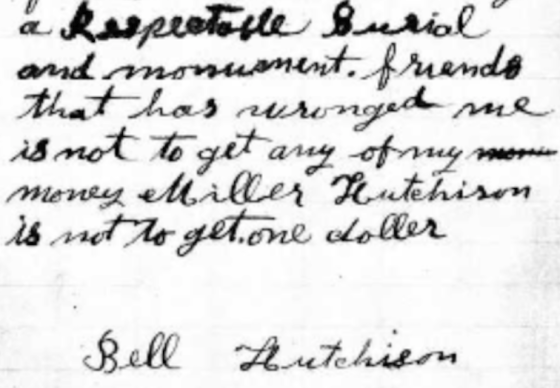 a Respectable Burial
and monument. friends
that has wronged me
is not to get any of my mon
money Miller Hutchison
is not to get one doller
Bell Hutchison